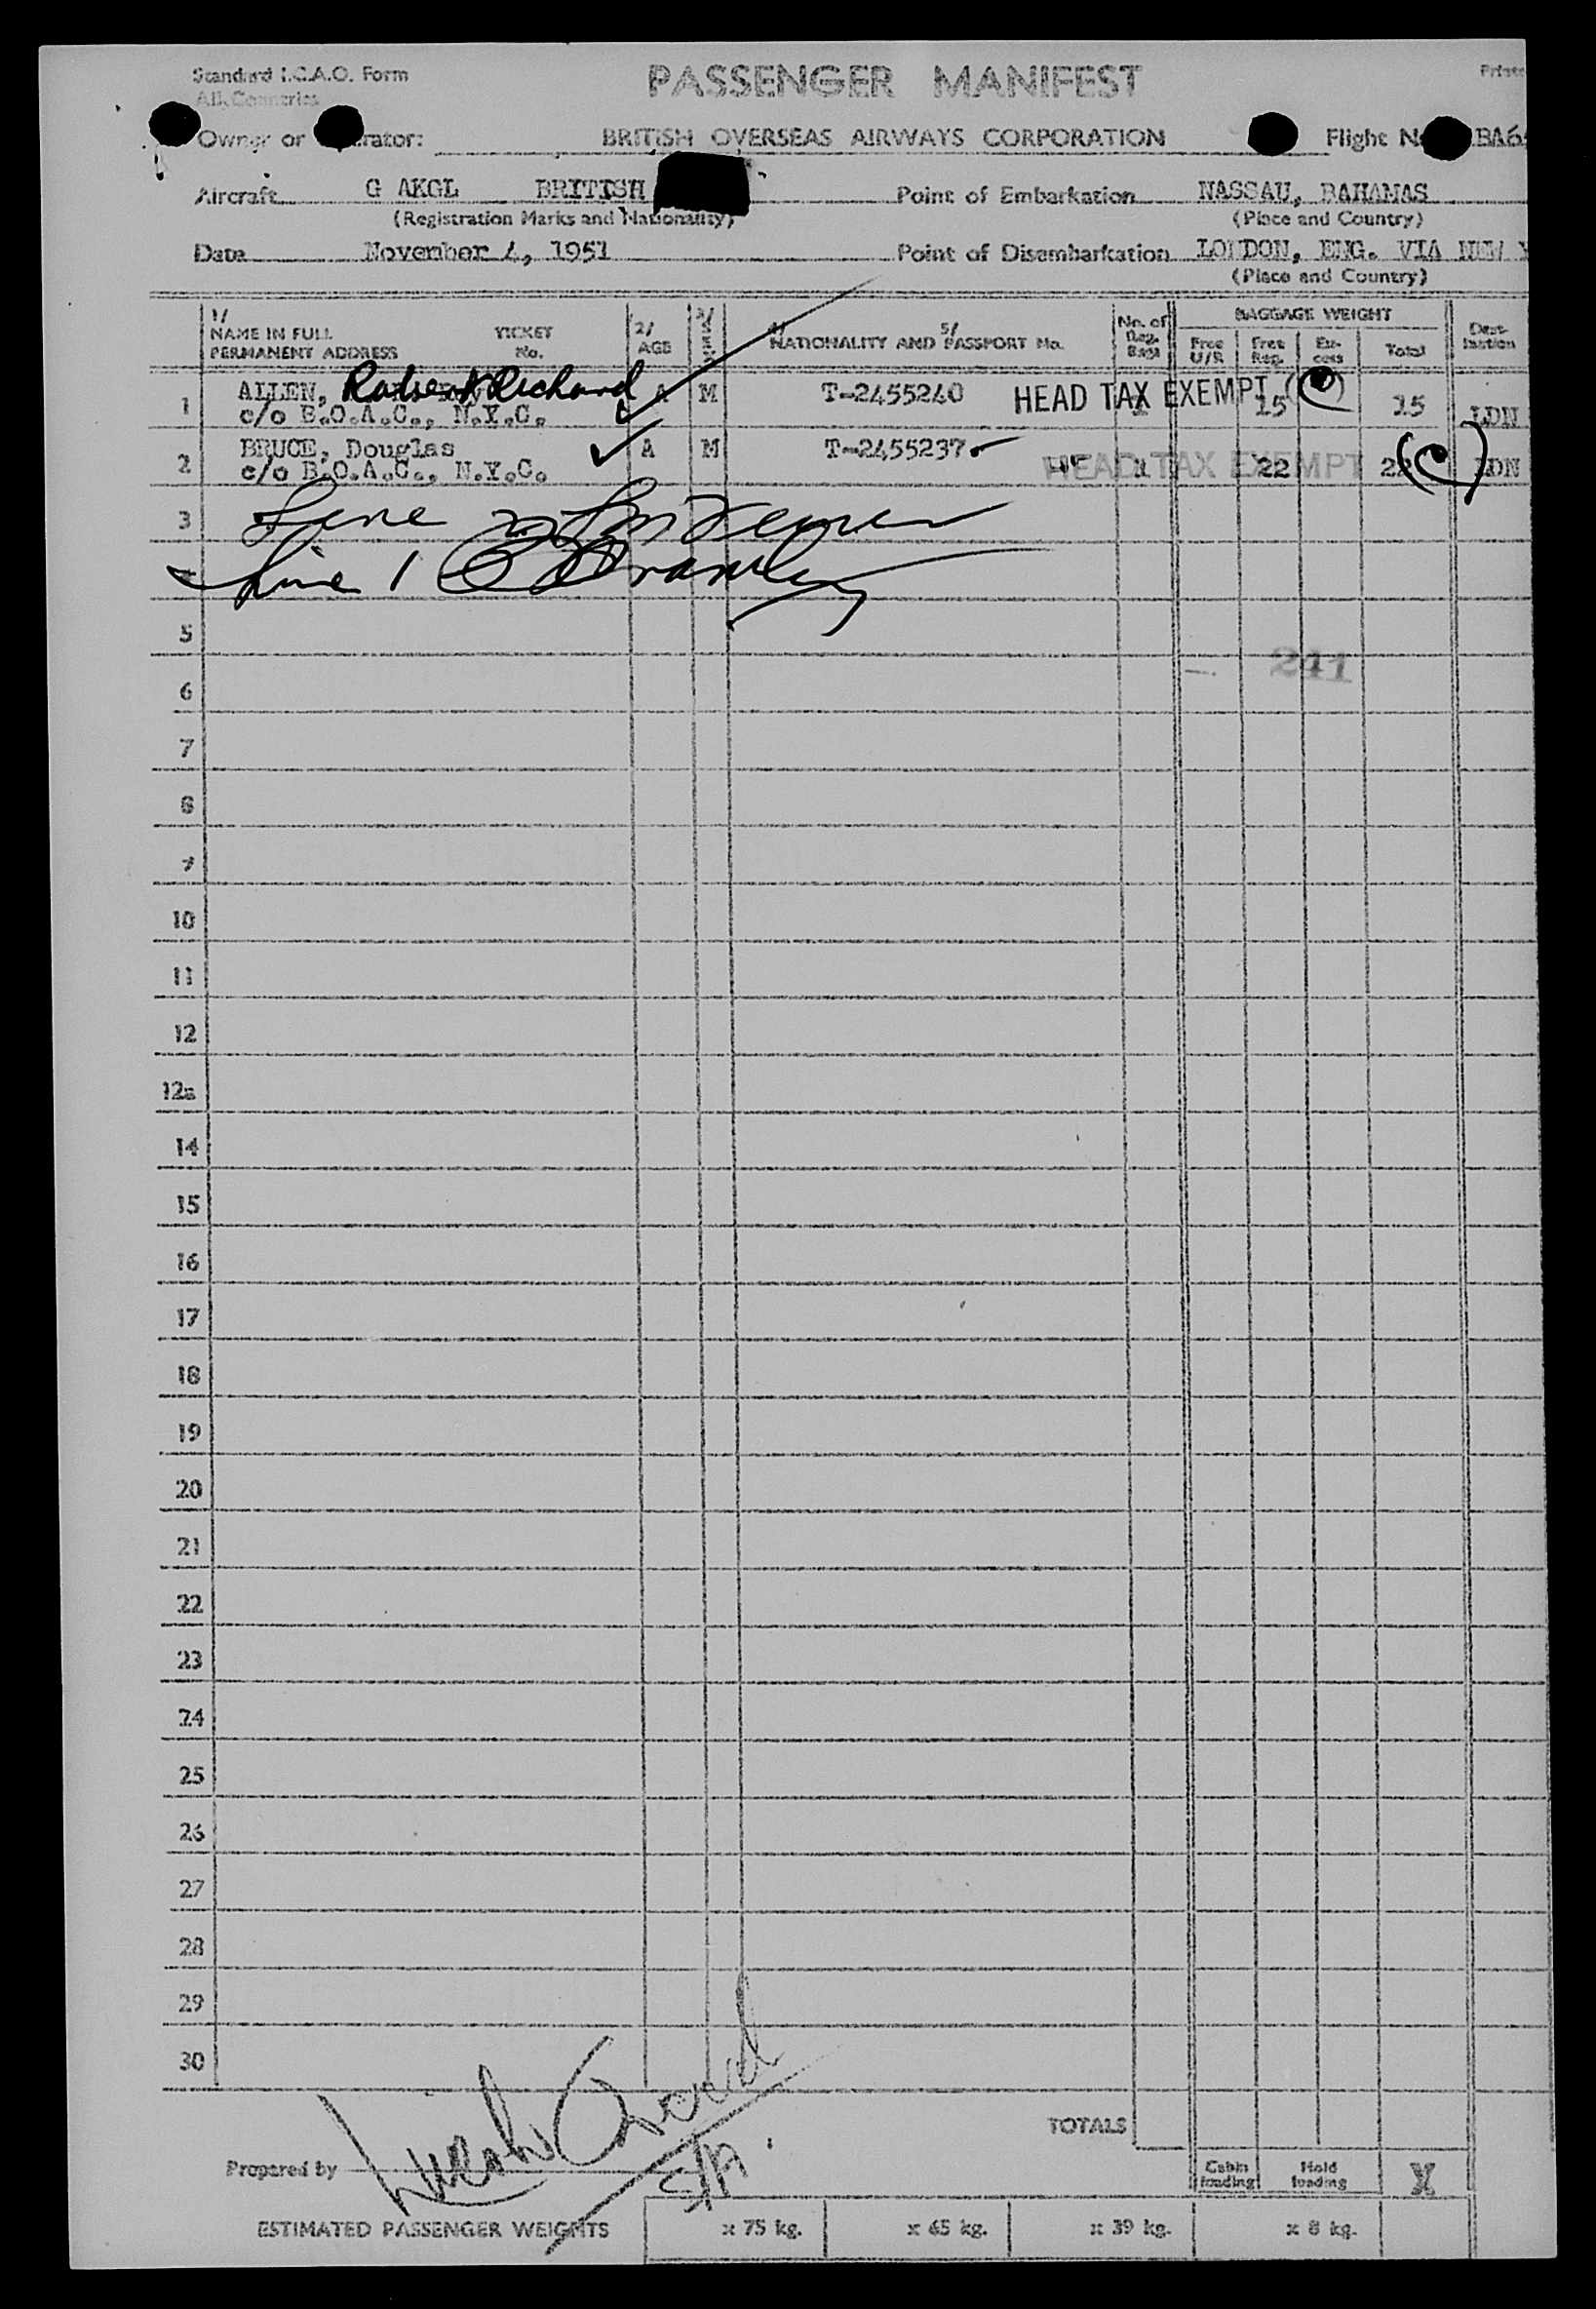 Standard I.C.A.O. Form
All Countries
PASSENGER MANIFEST
Owner or rator: BRITISH OVERSEAS AIRWAYS CORPORATION Flight BA6
Aircraft G AKGL BRITISH Point of Embarkation NASSAU, BAHAMAS
(Registration Marks and Nationality) (Place and Country)
Date November 4, 1951 Point of Disembarkation LONDON, ENG. VIA NEW
(Place and Country)
1/ NAME IN FULL TICKET 2/ 3/ 4/ 5/ No. of BAGGAGE WEIGHT Dest-
PERMANENT ADDRESS No. AGE NATIONALITY AND PASSPORT No. Bags Free U/R Free Reg. Ex-cess Total ination
1 ALLEN, Richard A M T-2455240 HEAD TAX EXEMPT 15 15 LDN
c/o B.O.A.C., N.Y.C.
2 BRUCE, Douglas A M T-2455237 HEAD TAX EXEMPT 1 22 22 LDN
c/o B.O.A.C., N.Y.C.
3
Line 1
5
241
6
7
8
9
10
11
12
12a
14
15
16
17
18
19
20
21
22
23
24
25
26
27
28
29
30
TOTALS
Prepared by S/A Cabin loading Hold loading X
ESTIMATED PASSENGER WEIGHTS x 75 kg. x 65 kg. x 39 kg. x 8 kg.